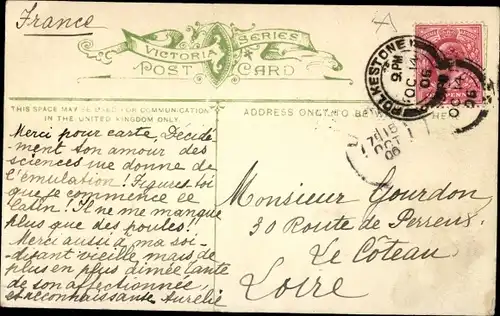 France
VICTORIA SERIES
POST CARD
THIS SPACE MAY BE USED FOR COMMUNICATION
IN THE UNITED KINGDOM ONLY.
ADDRESS ONLY TO BE HE
FOLKESTONE
9.PM
OC 14
06
OC 14
06
7 15
OCT
06
Merci pour carte Décidé
ment son amour des
sciences me donne de
l'émulation! Figures toi
que je commence le
Latin! Il ne me manque
plus que des poules!
Merci aussi à ma soi-
disant vieille mais de
plus en plus aimée tante
de son affectionnée
et reconnaissante Aurélie
Monsieur Gourdon
30 Route de Perreux
Le Côteau
Loire